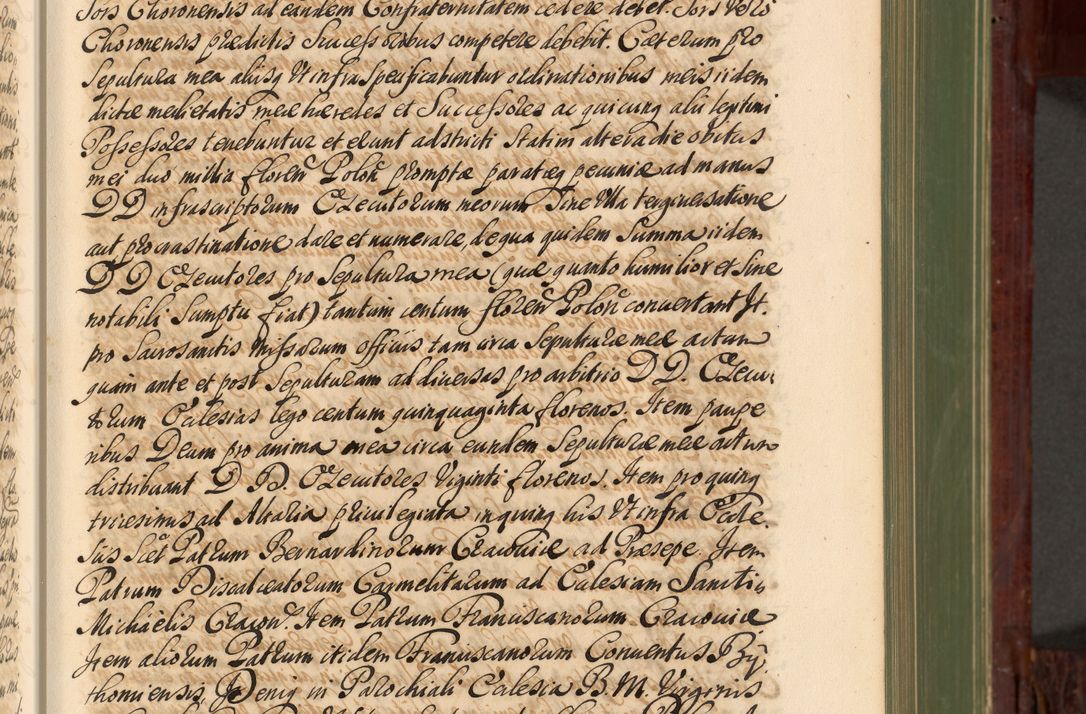 Sors Choronensis ad eandem Confraternitatem cedere debet. Sors vero
Choronensis prædictis Successoribus competere debebit. Cæterum pro
Sepultura mea alijsq Vt infra specificabuntur ordinationibus meis iidem
dictæ medietatis meæ hæredes et Successores ac quicunq alii legitimi
Possessores tenebuntur et erunt adstricti Statim altera die obitus
mei duo millia floren Polon promptæ paratæq pecuniæ ad manus
DD infrascriptorum Executorum meorum Sine Vlla tergiversatione
aut procrastinatione dare et numerare, de qua quidem Summa iidem
DD Executores pro Sepultura mea (quæ quanto humilior et sine
notabili Sumptu fiat) tantum centum floren Polon convertant It.
pro Sacrosanctis Missarum officiis tam circa Sepulturæ meæ actum
quam ante et post Sepulturam ad diversas pro arbitrio DD. Execu
torum Ecclesias lego centum quinquaginta florenos. Item paupe
ribus Deum pro anima mea circa eundem Sepulturæ meæ actum
distribuant DD. Executores Viginti florenos. Item pro quinq
tricesimus ad Altaria privilegiata in quinq his Vt infra Eccle.
siis Scet Patrum Bernardinorum Cracoviæ ad Præsepe. Item
Patrum Discalceatorum Carmelitarum ad Ecclesiam Sancti
Michaëlis Cracov. Item Patrum Franciscanorum Cracoviæ
Item aliorum Patrum itidem Franciscanorum Conventus By
thomiensis, Deniq in Parochiali Ecclesia B. M. Virginis